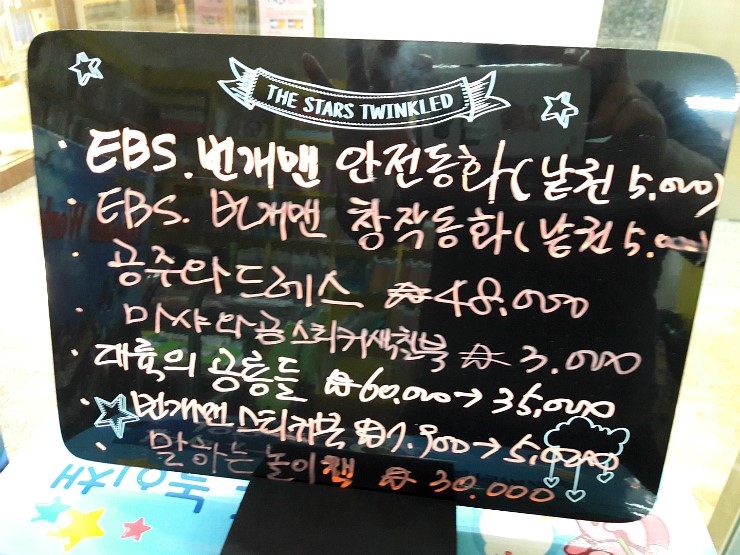 THE STARS TWINKLED
· EBS.번개맨 안전동화(낱권 5,000)
· EBS. 번개맨 창작동화(낱권 5,000)
· 공주와 드레스 ₩48,000
· 마샤와곰스티커색칠북 ₩ 3,000
· 대륙의 공룡들 ₩60,000→35,000
· 번개맨스티커북 ₩7,900→5,000
· 말하는놀이책 ₩ 30,000